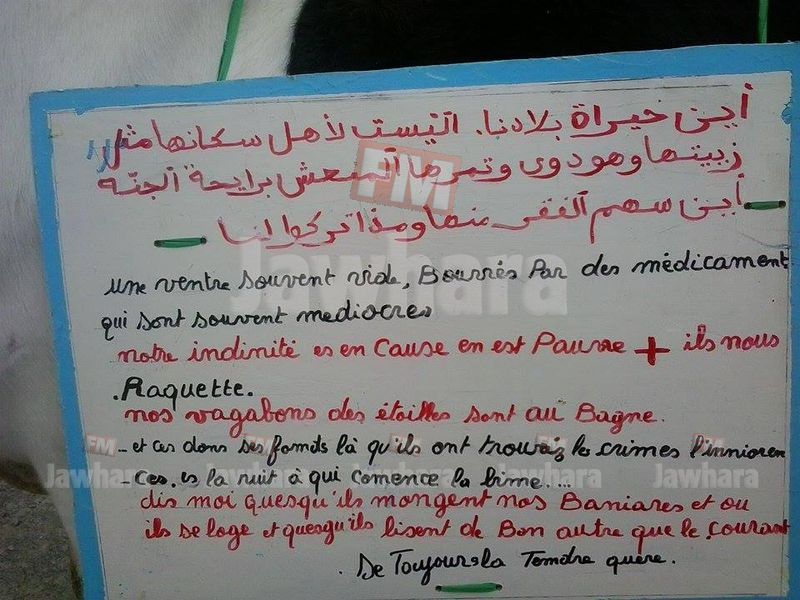 أين خيراة بلادنا. اليست لأهل سكانها مثل
زيتها وهودوى وتمرها المنعش برايحة الجنه
أين سهم الفقر منها ومذا تركوا لنا
une ventre souvent vide, Bourrés Par des médicament
qui sont souvent mediocres
notre indinité es en Cause en est Pauvre + ils nous
.Raquette.
nos vagabons des étoilles sont au Bagne.
_ et ces dans ses fomits là qu'ils ont trouvaiz les crimes l'innioren
- Ces. es la nuit à qui comence la bime....
dis moi quesqu'ils mangent nos Baniares et ou
ils se loge et quesqu'ils lisent de Bon autre que le courant
. De Toujours la Tendre guère.
FM
Jawhara
FM
Jawhara
FM
Jawhara
FM
Jawhara
FM
Jawhara
FM
Jawhara